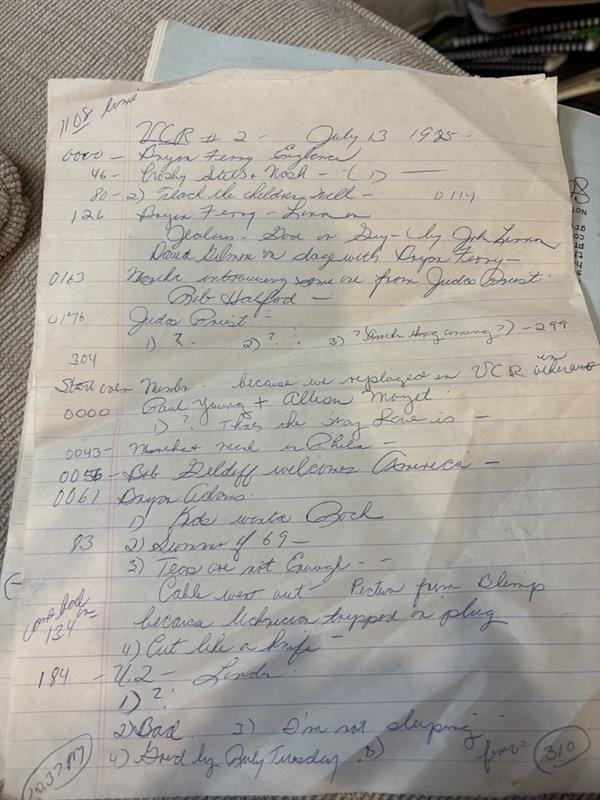 1108 time
VCR # 2 - July 13 1985 -
0000 - Bryan Ferry England
46 - Crosby Stills & Nash - (1) -
80 - 2) Teach the children well - 0114
126 Bryan Ferry - London
Jealous Guy - (by John Lennon
David on stage with Bryan Ferry -
0163 introducing some one from Judas Priest.
Rob Halford -
0176 Judas Priest -
1) ? - 2) ? 3) ? coming ?) - 299
304
Start over Number. because we replayed on VCR in
0000 Paul Young + Allison Moyet
1) ? Thats the Way Love is -
0043 - in Phila -
0056 - Bob Geldoff welcomes America -
0061 Bryan Adams.
1) Kids wanta Rock
83 2) Summer of 69 -
3) Tears are not Enough - -
Cable went out Picture from Blimp
came back on
134
because technician tripped on plug
4) Cut like a knife -
184 - U.2 - London
1) ?
2) Bad. 3) I'm not sleeping -
4) Good by Ruby Tuesday. 5)
12:37 PM
310